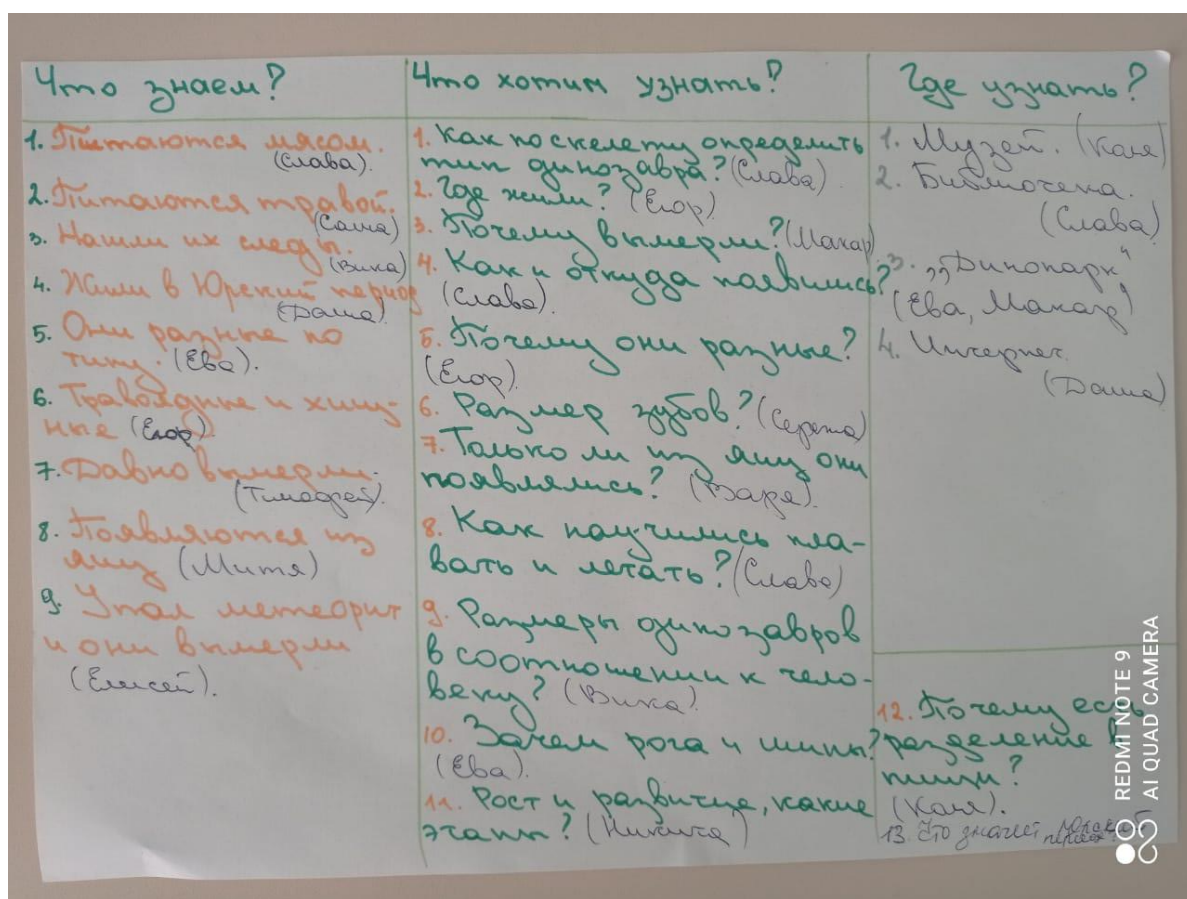 Что знаем?
1. Питаются мясом.
(Слава).
2. Питаются травой.
(Саша)
3. Нашли их следы.
(Вика)
4. Жили в Юрский период
(Даша)
5. Они разные по
типу. (Ева).
6. Травоядные и хищ-
ные (Егор)
7. Давно вымерли.
(Тимофей).
8. Появляются из
яиц (Митя)
9. Упал метеорит
и они вымерли
(Елисей).
Что хотим узнать?
1. Как по скелету определить
тип динозавра? (Слава)
2. Где жили? (Егор)
3. Почему вымерли? (Макар)
4. Как и откуда появились?
(Слава).
5. Почему они разные?
(Егор).
6. Размер зубов? (Сережа)
7. Только ли из яиц они
появлялись? (Варя).
8. Как научились пла-
вать и летать? (Слава)
9. Размеры динозавров
в соотношении к чело-
веку? (Вика)
10. Зачем рога и шипы?
(Ева).
11. Рост и развитие, какие
этапы? (Никита)
Где узнать?
1. Музей. (Коля)
2. Библиотека.
(Слава)
3. „Динопарк"
(Ева, Макар)
4. Интернет.
(Даша)
12. Почему есть
разделение в
пищи?
(Коля).
13. Что значит Юрский
период
REDMI NOTE 9
AI QUAD CAMERA